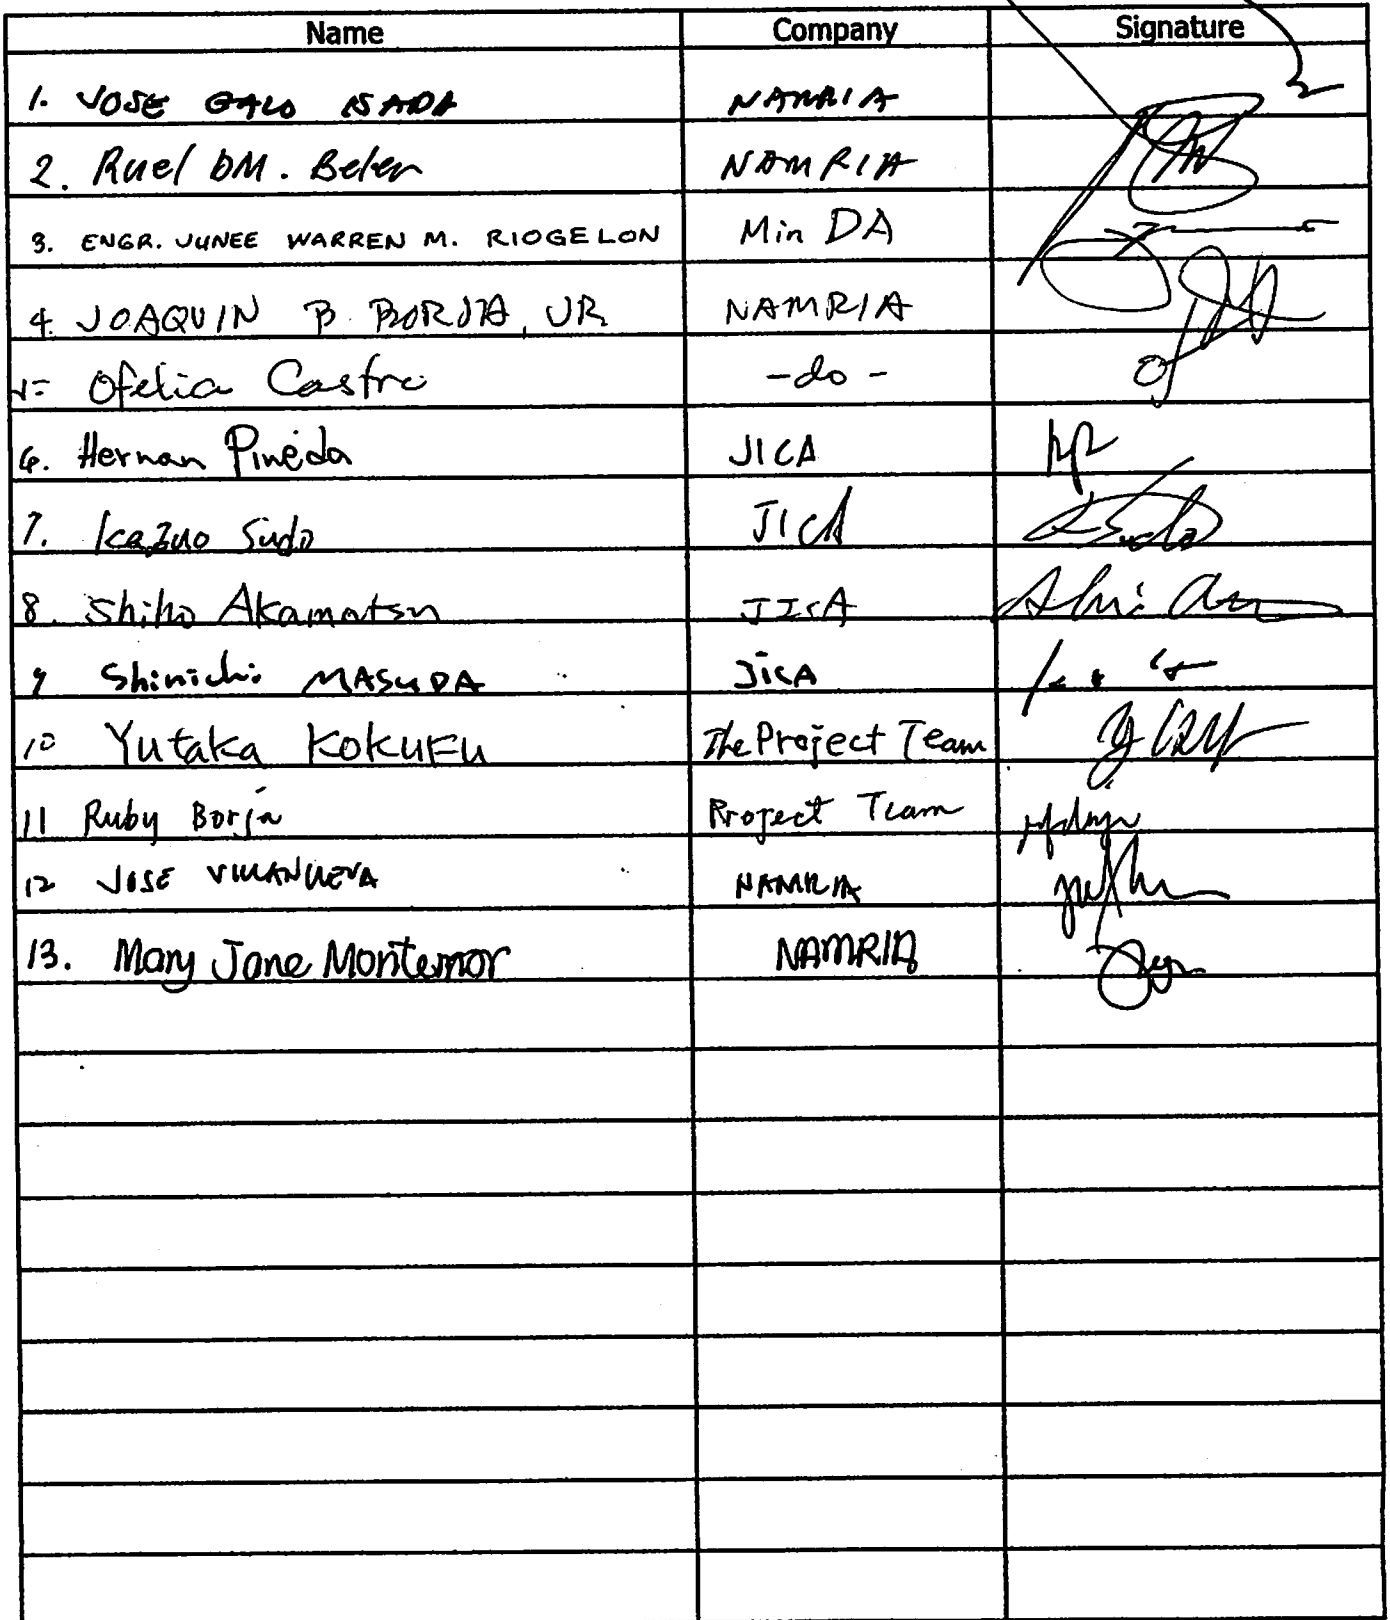 Name Company Signature
1. JOSE GALO ISADA NAMRIA
2. Ruel DM. Belen NAMRIA
3. ENGR. JUNEE WARREN M. RIOGELON Min DA
4. JOAQUIN B. BORJA, JR. NAMRIA
Ofelia Castro -do-
6. Hernan Pineda JICA
7. Kazuo Sudo JICA
8. Shiho Akamatsu JICA
9 Shinichi MASUDA JICA
10 Yutaka KOKUFU The Project Team
11 Ruby Borja Project Team
12 JOSE VILLANUEVA NAMRIA
13. Mary Jane Montemor NAMRIA